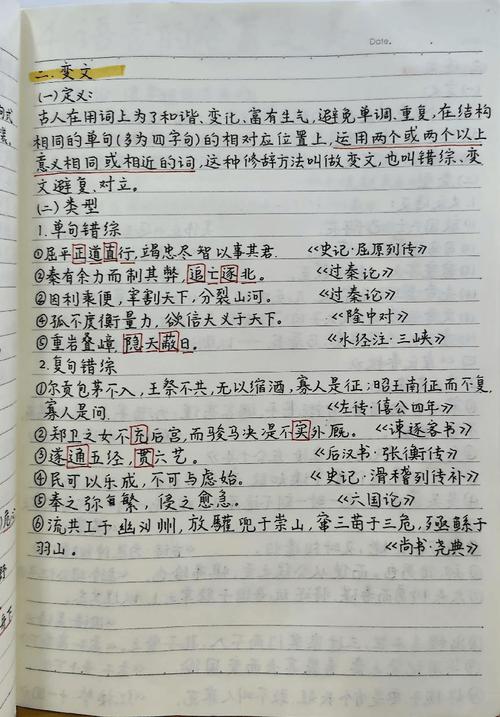 Date.
二.变文
(一)定义:
古人在用词上为了和谐、变化、富有生气,避免单调、重复,在结构
相同的单句(多为四字句)的相对应位置上,运用两个或两个以上
意义相同或相近的词,这种修辞方法叫做变文,也叫错综、变
文避复、对立。
(二)类型
1.单句错综
①屈平正道直行,竭忠尽智以事其君. 《史记·屈原列传》
②秦有余力而制其弊,追亡逐北。 《过秦论》
②因利乘便,宰割天下,分裂山河。 《过秦论》
④孤不度德量力,欲信大义于天下。 《隆中对》
⑤重岩叠嶂,隐天蔽日。 《水经注·三峡》
2.复句错综
①尔贡包茅不入,王祭不共,无以缩酒,寡人是征;昭王南征而不复,
寡人是问. 《左传·僖公四年》
②郑卫之女不充后宫,而骏马决是不实外厩。 《谏逐客书》
③遂通五经,贯六艺。 《后汉书·张衡传》
④民可以乐成,不可与虑始。 《史记·滑稽列传补》
⑤奉之弥繁,侵之愈急。 《六国论》
⑥流共工于幽州,放驩兜于崇山,窜三苗于三危,殛鲧于
羽山。 《尚书·尧典》